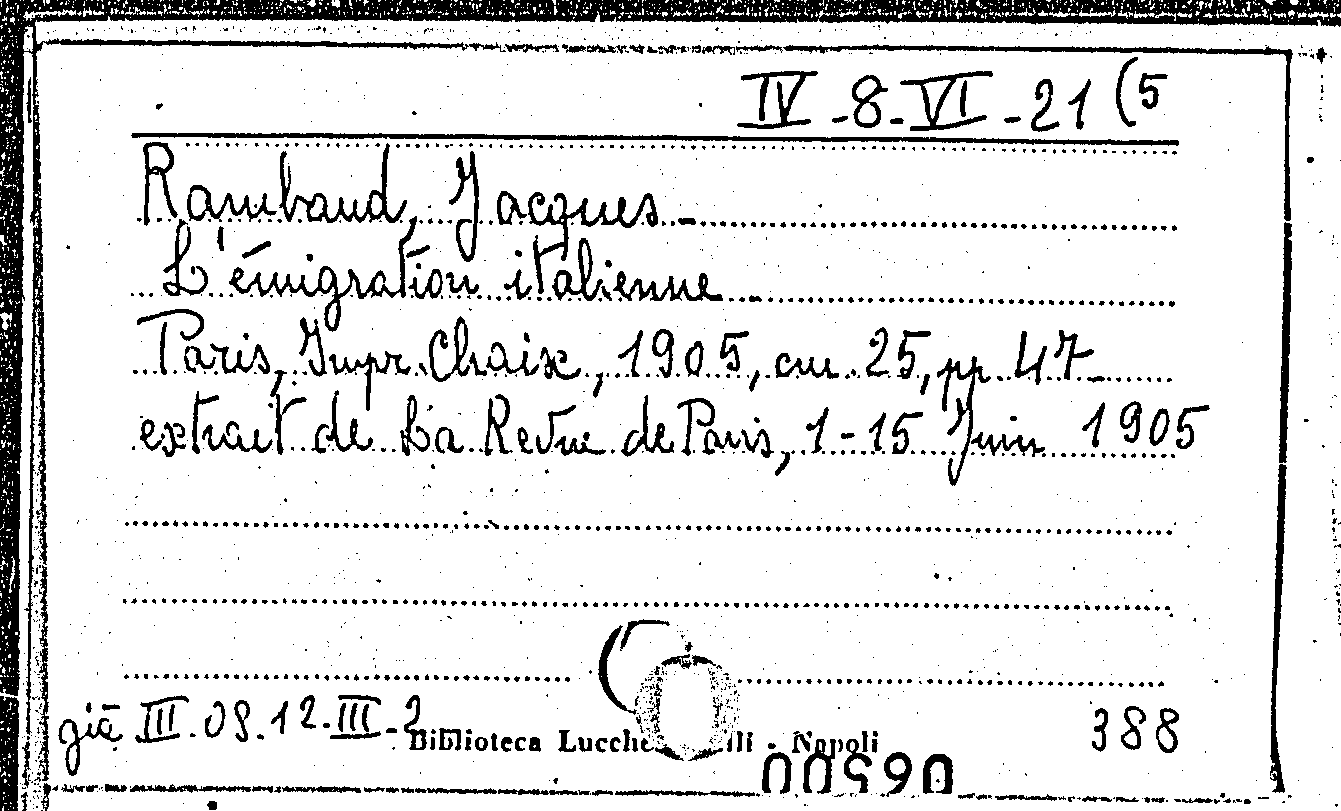 IV-8-VI-21 (5
Rambaud, Jacques-
L'émigration italienne
Paris, Impr. Chaix, 1905, cm. 25, pp. 47
extrait de La Revue de Paris, 1-15 Juin 1905
già III.09.12-III-2
Biblioteca Lucche lli - Napoli
388